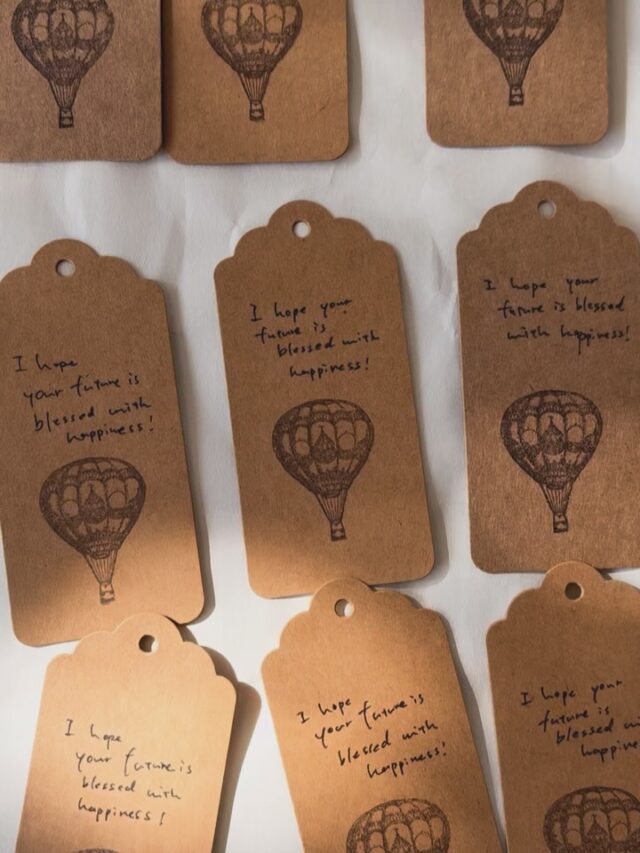 I hope
your future is
blessed with
happiness!
I hope your
future is
blessed with
happiness!
I hope your
future is blessed
with happiness!
I hope
your future is
blessed with
happiness!
I hope
your future is
blessed with
happiness!
I hope your
future is
blessed